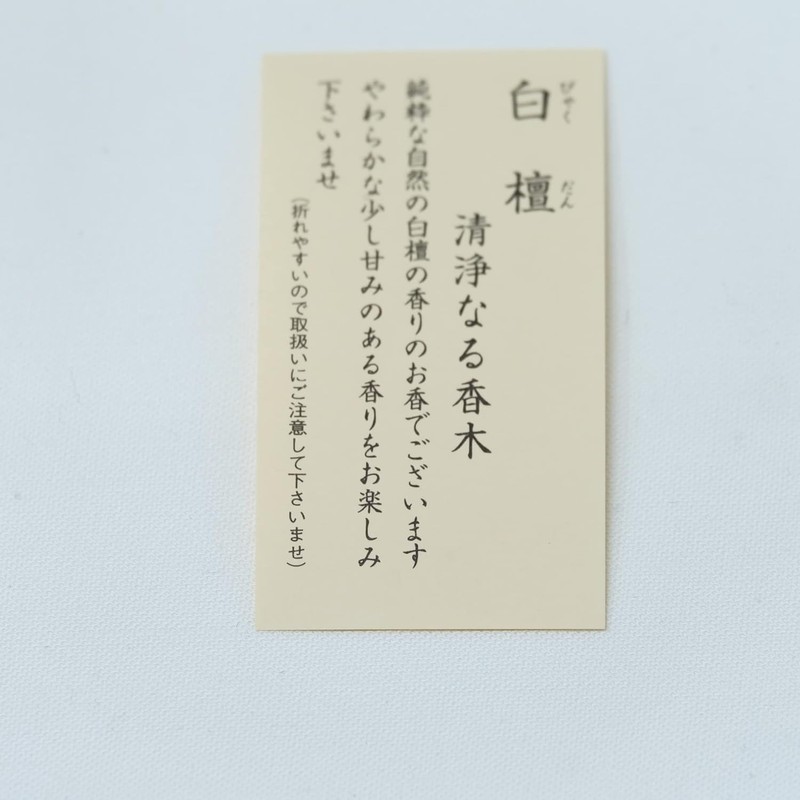 白檀
びゃくだん
清浄なる香木
純粋な自然の白檀の香りのお香でございます
やわらかな少し甘みのある香りをお楽しみ
下さいませ
（折れやすいので取扱いにご注意して下さいませ）